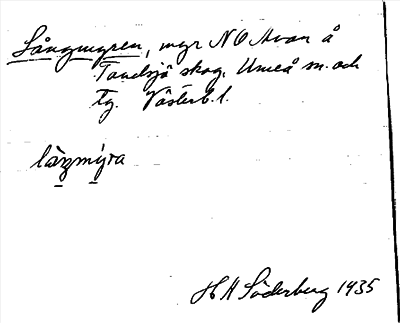 Långmyren, myr NO Avan å
Tavelsjö skog. Umeå sn. och
tg. Västerb. l.
làŋmýra
H A Söderberg 1935